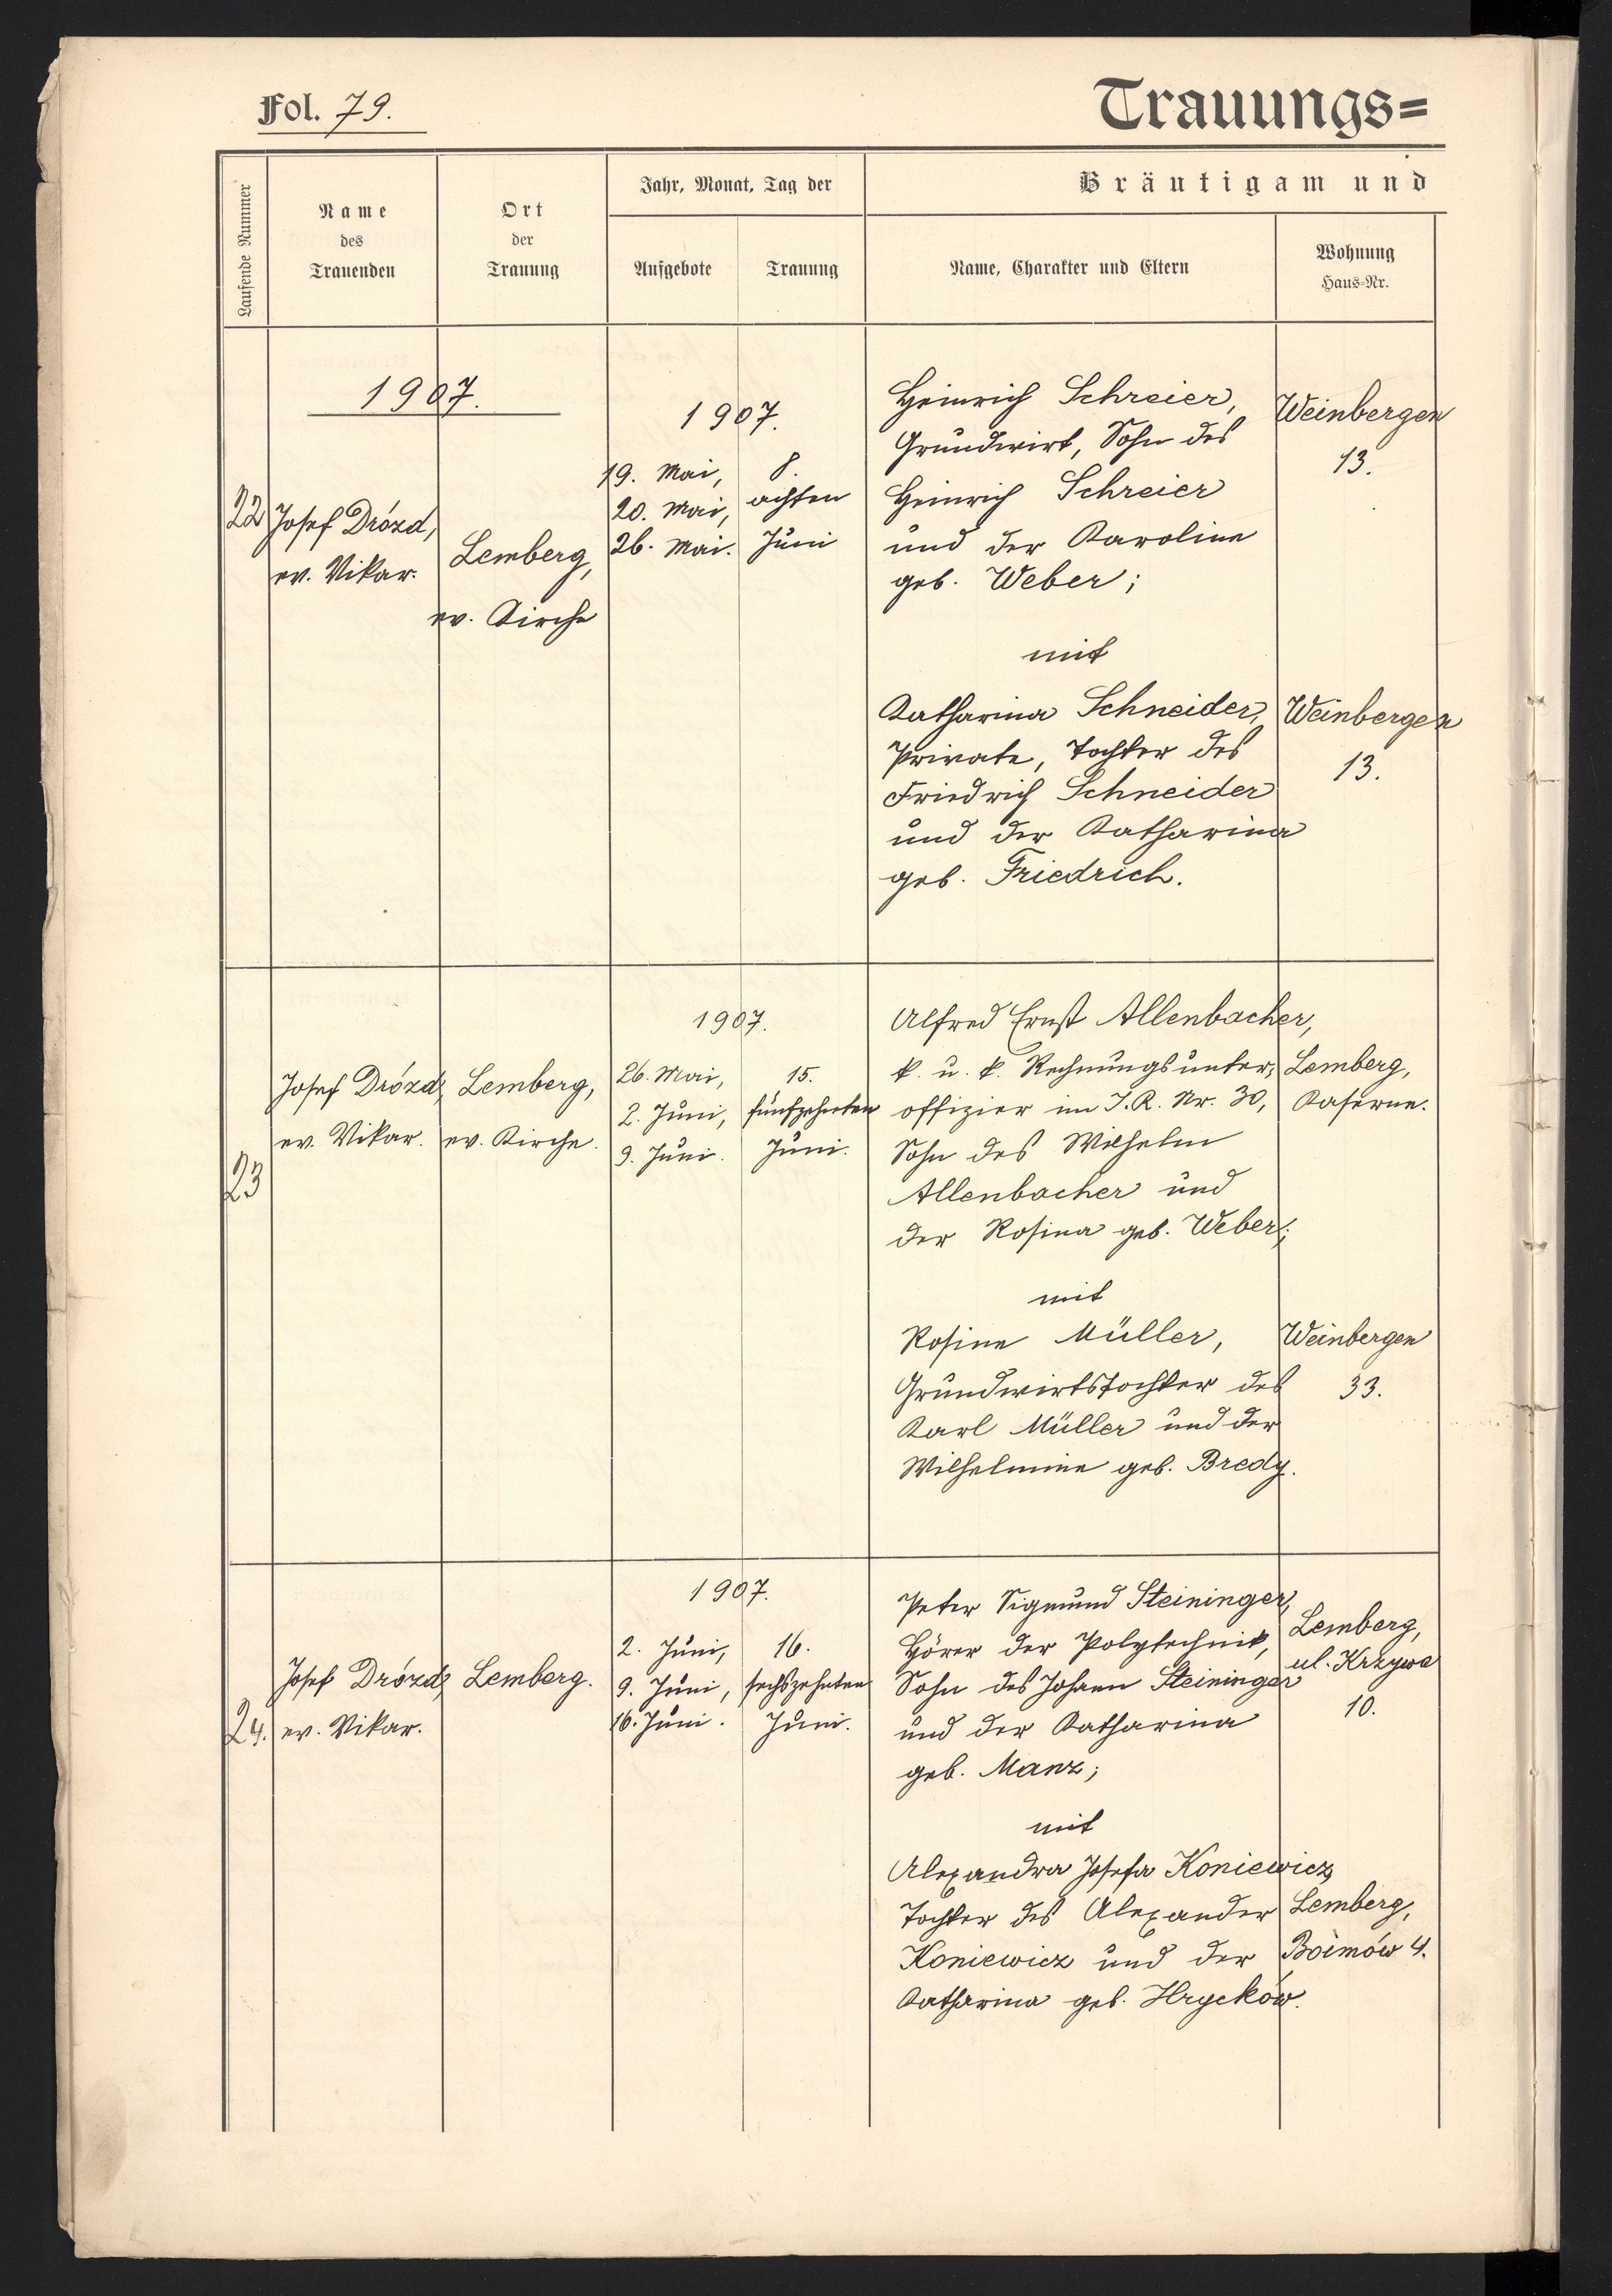 Fol. 79.
Trauungs=
Laufende Nummer
Name
des
Trauenden
Ort
der
Trauung
Jahr, Monat, Tag der
Aufgebote
Trauung
Bräutigam und
Name, Charakter und Eltern
Wohnung
Haus=Nr.
1907.
22
Josef Drózd,
ev. Vikar.
Lemberg,
ev. Kirche
1907.
19. Mai,
20. Mai,
26. Mai.
8.
achten
Juni
Heinrich Schreier,
Grundwirt, Sohn des
Heinrich Schreier
und der Karoline
geb. Weber;
mit
Katharina Schneider,
Private, Tochter des
Friedrich Schneider
und der Katharina
geb. Friedrich.
Weinbergen
13.
Weinbergen
13.
23
Josef Drózd,
ev. Vikar.
Lemberg,
ev. Kirche.
1907.
26. Mai,
2. Juni,
9. Juni.
15.
fünfzehnten
Juni.
Alfred Ernst Allenbacher,
k. u. k. Rechnungsunter-
offizier im J. R. Nr. 30,
Sohn des Wilhelm
Allenbacher und
der Rosina geb. Weber;
mit
Rosine Müller,
Grundwirtstochter des
Karl Müller und der
Wilhelmine geb. Bredy.
Lemberg,
Kaserne.
Weinbergen
33.
24.
Josef Drózd,
ev. Vikar.
Lemberg.
1907.
2. Juni,
9. Juni,
16. Juni.
16.
sechszehnten
Juni.
Peter Sigmund Steininger,
Hörer der Polytechnik,
Sohn des Johann Steininger
und der Katharina
geb. Manz;
mit
Alexandra Josefa Koniewicz,
Tochter des Alexander
Koniewicz und der
Katharina geb. Hryćków.
Lemberg,
ul. Krzywa
10.
Lemberg,
Boimów 4.